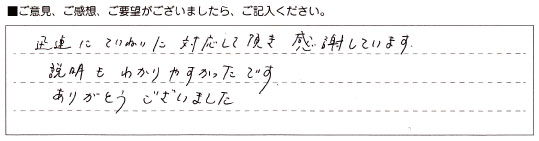 ■ご意見、ご感想、ご要望がございましたら、ご記入ください。
迅速にていねいに対応して頂き感謝しています。
説明もわかりやすかったです
ありがとうございました